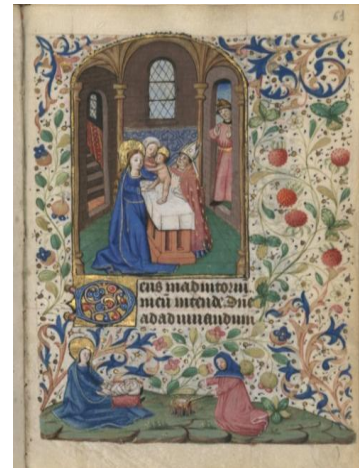 61
eus in adiutorium
meum intende. Dne
ad adiuuandum